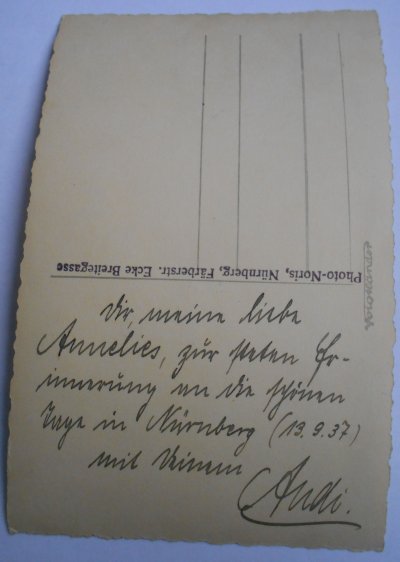 Photo-Noris, Nürnberg, Färberstr. Ecke Breitegasse
Voigtländer
Dir, meine liebe
Annelies, zur steten Er-
innerung an die schönen
Tage in Nürnberg (13.9.37)
mit Deinem
Andi.